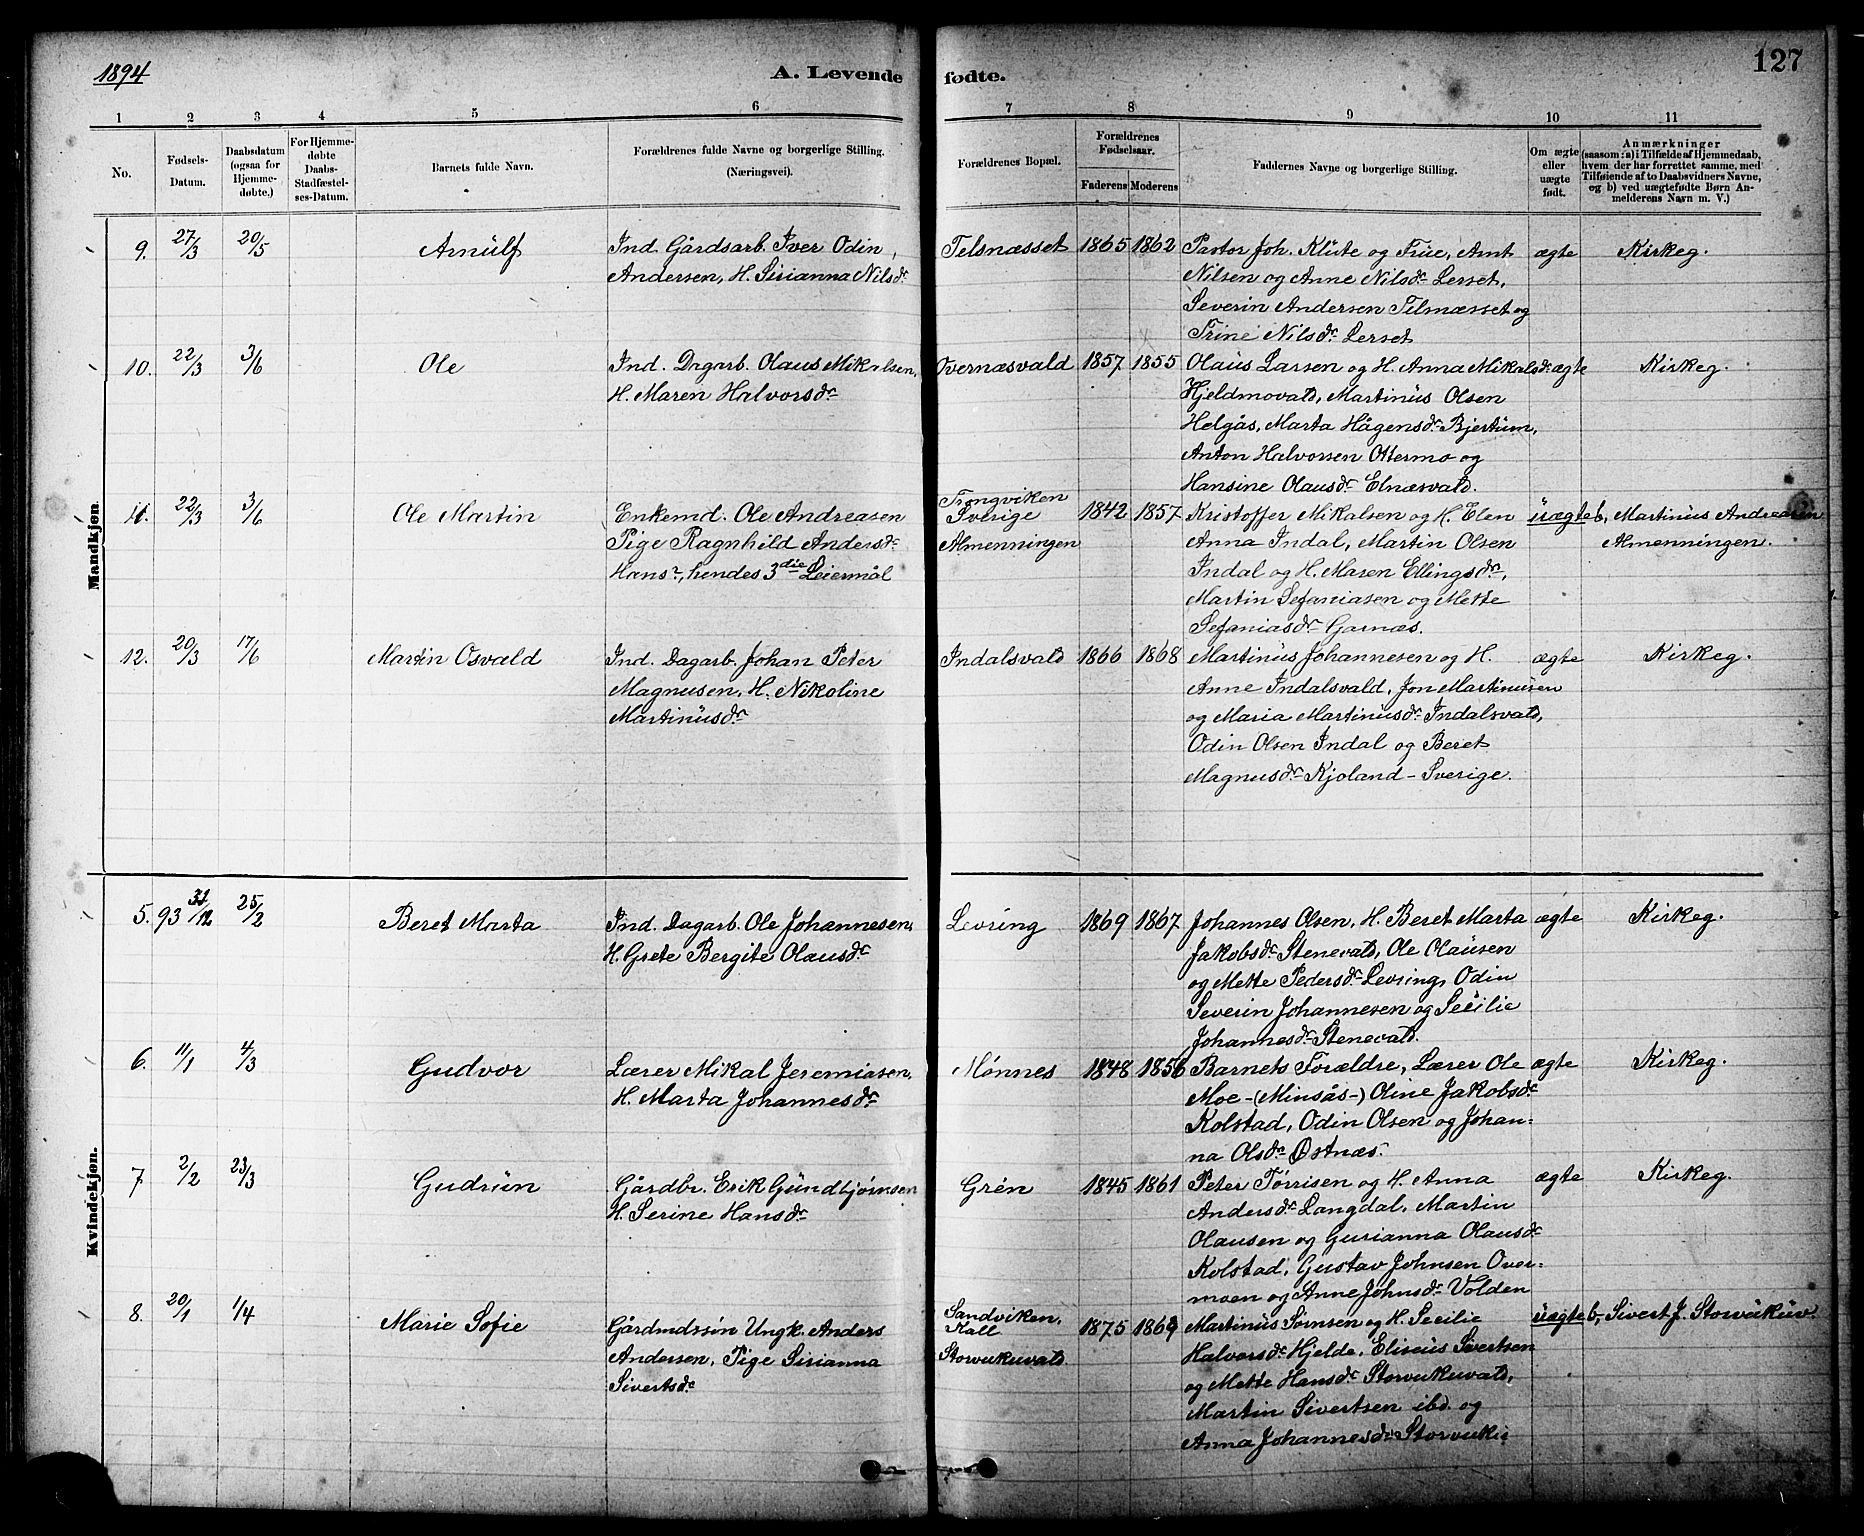 1894
A. Levende fødte.
127
1 2 3 4 5 6 7 8 9 10 11
No.
Fødsels-
Datum.
Daabsdatum
(ogsaa for
Hjemme-
døbte.)
For Hjemme-
døbte
Daabs-
Stadfæstel-
ses-Datum.
Barnets fulde Navn.
Forældrenes fulde Navne og borgerlige Stilling.
(Næringsvei).
Forældrenes Bopæl.
Forældrenes
Fødselsaar.
Faderens Moderens
Faddernes Navne og borgerlige Stilling.
Om ægte
eller
uægte
født.
Anmærkninger
(saasom: a) i Tilfælde af Hjemmedaab,
hvem der har forrettet samme, med
Tilføiende af to Daabsvidners Navne,
og b) ved uægtefødte Børn An-
melderens Navn m. V.)
Mandkjøn.
9. 27/3 20/5 Arnulf
Ind. Gårdsarb. Iver Odin
Andersen, H. Sirianna Nilsdr
Telsnæsset 1865 1862
Pastor Joh. Klüte og Frue, Arnt
Nilsen og Anne Nilsdr Lerset,
Severin Andersen Telsnæsset og
Trine Nilsdr Lerset
ægte Kirkeg.
10. 22/3 3/6 Ole
Ind. Dagarb. Olaus Mikalsen,
H. Maren Halvorsdr
Overnæsvald 1857 1855
Olaus Larsen og H. Anna Mikalsdr
Hjeldmovald, Martinus Olsen
Helgås, Marta Hågensdr Bjertum,
Anton Halvorsen Ottermo og
Hansine Olausdr Elnæsvald.
ægte Kirkeg.
11. 22/3 3/6 Ole Martin
Enkemd. Ole Andreasen
Pige Ragnhild Andersdr
Hans?, hendes 3die Leiermål
Trongviken
Sverige
Almenningen
1842 1857
Kristoffer Mikalsen og H. Elen
Anna Indal, Martin Olsen
Indal og H. Maren Ellingsdr,
Martin Sefaniasen og Mette
Sefaniasdr Garnæs.
uægte b, Martinus Andreasen
Almenningen.
12. 20/3 17/6 Martin Osvald
Ind. Dagarb. Johan Peter
Magnusen, H. Nikoline
Martinusdr
Indalsvald 1866 1868
Martinus Johannesen og H.
Anne Indalsvald, Jon Martinusen
og Maria Martinusdr Indalsvald,
Odin Olsen Indal og Beret
Magnusdr Kjoland - Sverige.
ægte Kirkeg.
Kvindekjøn.
5. 93 31/12 25/2 Beret Marta
Ind. Dagarb. Ole Johannesen,
H. Grete Bergite Olausdr
Levring 1869 1867
Johannes Olsen, H. Beret Marta
Jakobsdr Stenevald, Ole Olausen
og Mette Pedersdr Levring, Odin
Severin Johannesen og Secilie
Johannesdr Stenevald.
ægte Kirkeg.
6. 11/1 4/3 Gudvor
Lærer Mikal Jeremiasen,
H. Marta Johannesdr
Mønnes 1848 1856
Barnets Forældre, Lærer Ole
Moe - (Minsås-) Oline Jakobsdr
Kolstad, Odin Olsen og Johan-
na Olsdr Østnæs.
ægte Kirkeg.
7 2/2 23/3 Gudrun
Gårdbr. Erik Gundbjørnsen
H. Serine Hansdr
Grén 1845 1861
Peter Tørrisen og H. Anna
Andersdr Langdal, Martin
Olausen og Gurianna Olausdr
Kolstad, Gustav Johnsen Over-
moen og Anne Johnsdr Volden
ægte Kirkeg.
8. 20/1 1/4 Marie Sofie
Gårdmdssøn Ungk. Anders
Andersen, Pige Sirianna
Sivertsdr
Sandviken,
Kall
Storvukuvald
1875 1869
Martinus Sørnsen og H. Secilie
Halvorsdr Hjelde, Eliseus Sivertsen
og Mette Hansdr Storvukuvald,
Martin Sivertsen ibd. og
Anna Johannesdr Storvuku
uægte b, Sivert J. Storvukuv.